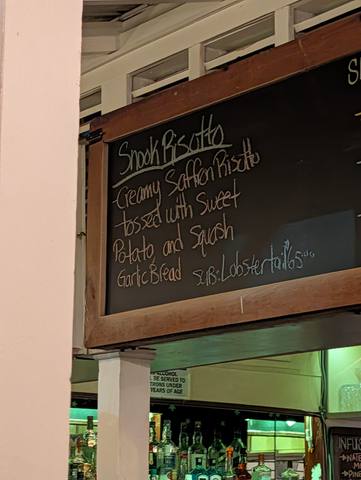 Snook Risotto
Creamy Saffron Risotto
tossed with Sweet
Potato, and Squash
Garlic Bread Sub: Lobster tail 65.00
S
ALCOHOL
BE SERVED TO
TRONS UNDER
YEARS OF AGE
INFUS